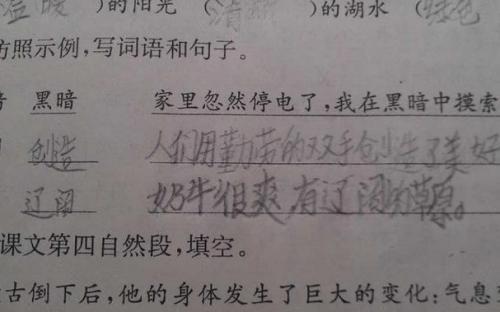 温暖)的阳光 (清澈)的湖水 (绿色
仿照示例,写词语和句子。
黑暗 家里忽然停电了,我在黑暗中摸索
创造 人们用勤劳的双手创造了美好
辽阔 奶牛很爽,有辽阔的草原。
课文第四自然段,填空。
古倒下后,他的身体发生了巨大的变化:气息